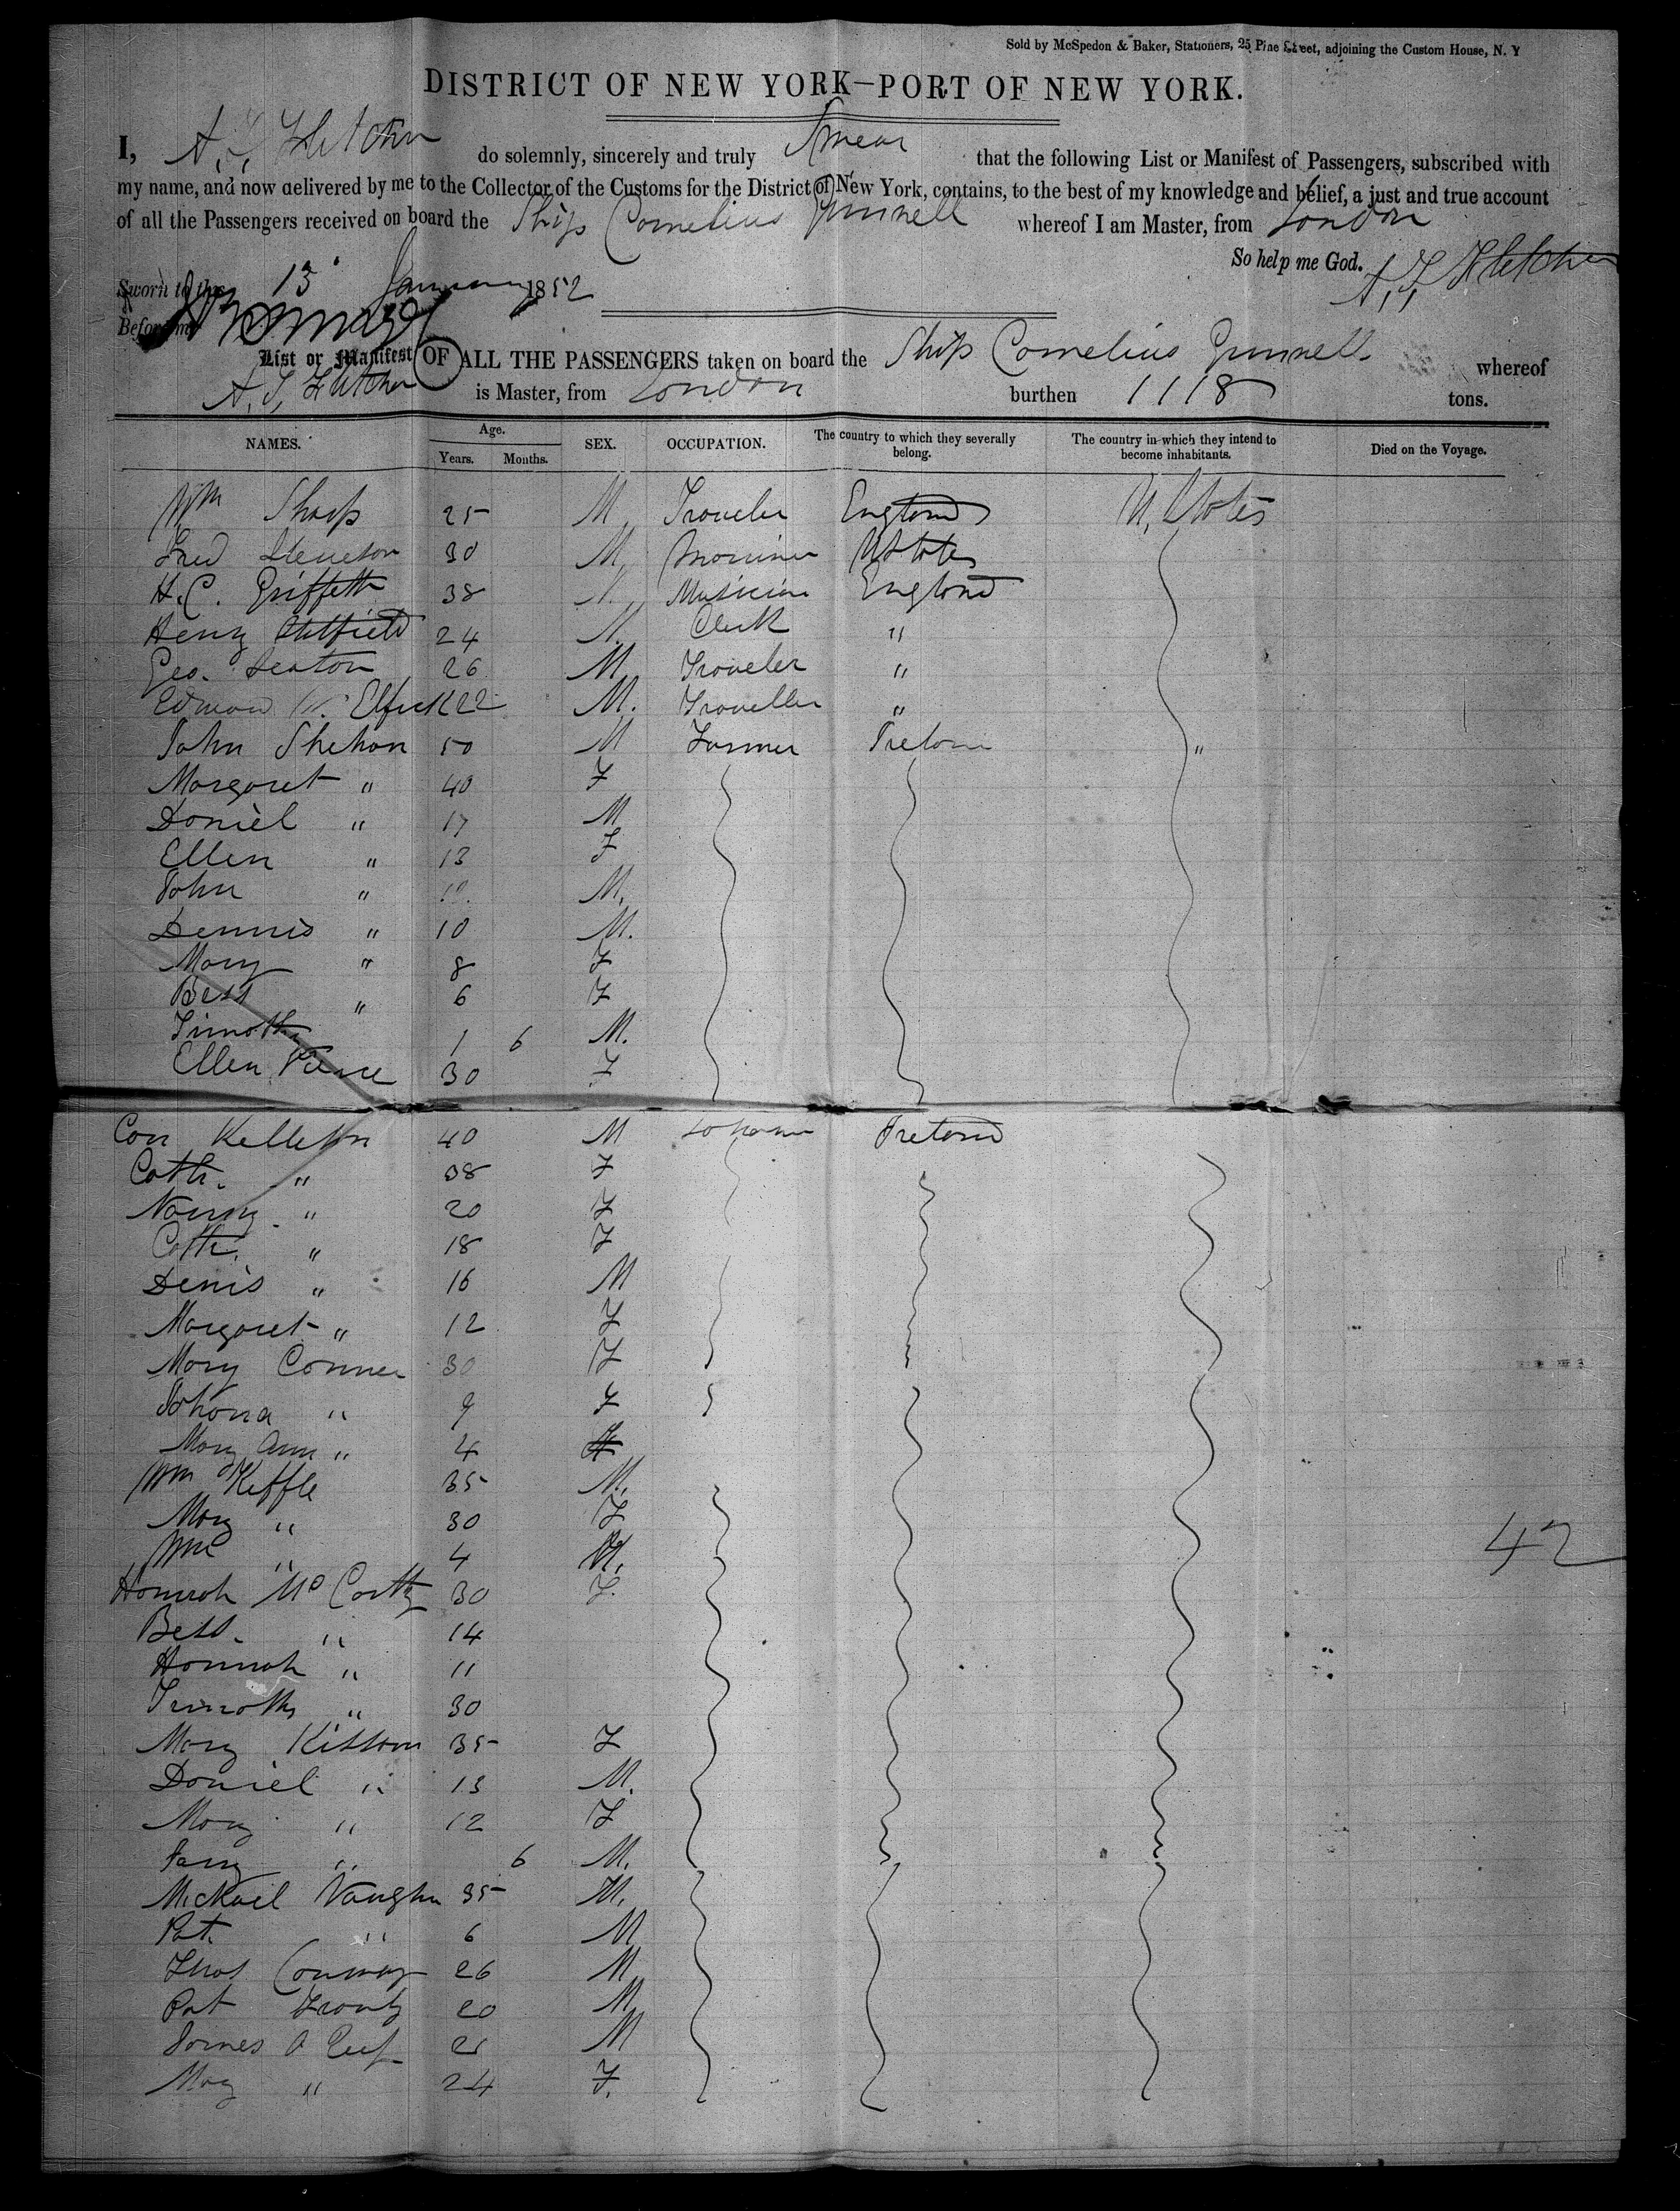 Sold by McSpedon & Baker, Stationers, 25 Pine Street, adjoining the Custom House, N. Y
DISTRICT OF NEW YORK—PORT OF NEW YORK.
I, A. T. Fletcher do solemnly, sincerely and truly Swear that the following List or Manifest of Passengers, subscribed with
my name, and now delivered by me to the Collector of the Customs for the District of New York, contains, to the best of my knowledge and belief, a just and true account
of all the Passengers received on board the Ship Cornelius Grinnell whereof I am Master, from London
So help me God. A. T. Fletcher
Sworn to this 13 January 1852
Before me
List or Manifest OF ALL THE PASSENGERS taken on board the Ship Cornelius Grinnell whereof
A. T. Fletcher is Master, from London burthen 1118 tons.
NAMES. Age. Years. Months. SEX. OCCUPATION. The country to which they severally belong. The country in which they intend to become inhabitants. Died on the Voyage.
Wm Sharp 25 M. Traveler England U. States
Fred 30 M. Mariner U States
H. C. Griffeth 38 M. Musician England
Henry 24 M. Clerk "
Geo. Seaton 26 M. Traveler "
Edward 22 M. Traveller "
John Shehan 50 M Farmer Ireland "
Margaret " 40 F
Daniel " 17 M
Ellen " 13 F
John " M.
Dennis " 10 M.
Mary " 8 F
Bess " 6 F
Timothy 1 6 M.
Ellen Pierce 30 F
Con 40 M Ireland
Cath. " 38 F
Nancy " 20 F
Cath. " 18 F
Denis " 16 M
Margaret " 12 F
Mary Conner 30 F
Johona " 9 F
Mary Ann " 4 F
Wm Keffle 35 M.
Mary " 30 F
Wm " 4 M.
42
Hannah McCarthy 30 F.
Bess. " 14
Hannah " 11
Timothy " 30
Mary 35 F
Daniel " 13 M.
Mary " 12 F
" 6 M.
Mickael Vaughn 35 M.
Pat. " 6 M
Thos Conway 26 M
Pat 20 M
James M
Mary " 24 F.